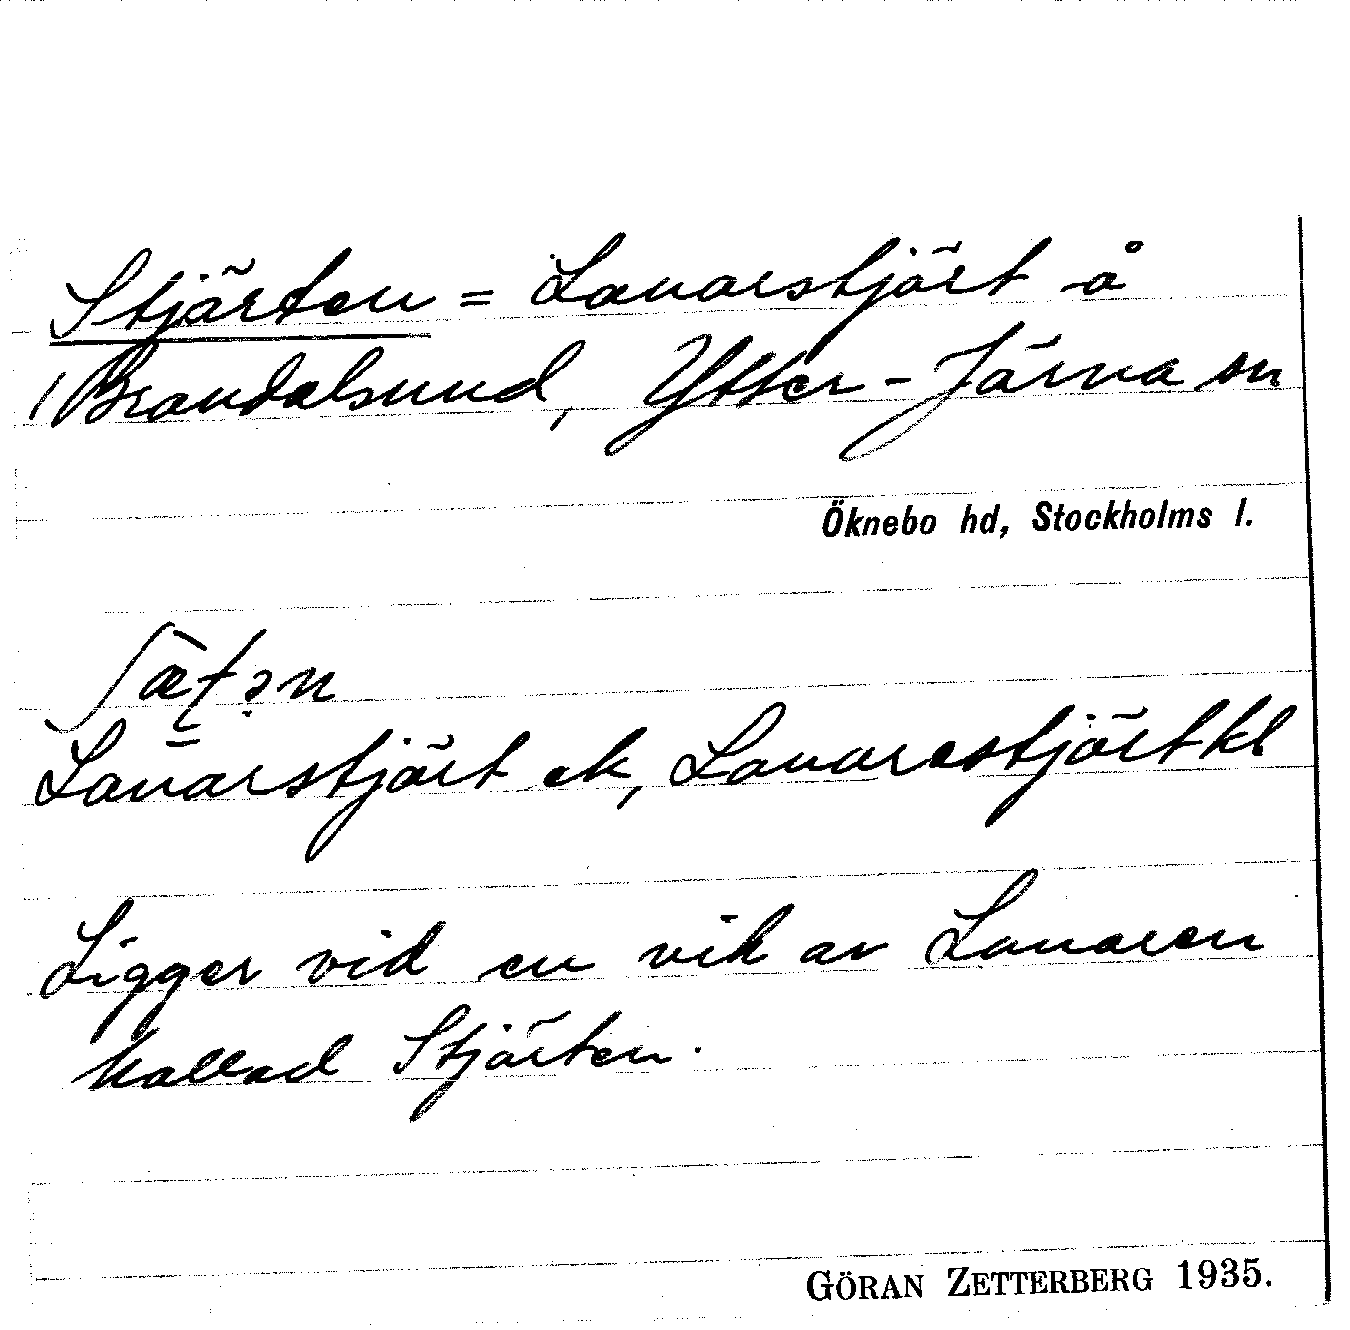 Stjärten = Lanarstjärt å
/ Brandalsund, Ytter-Järna sn
Öknebo hd, Stockholms l.
ʃǣʈən
Lanarstjärt ek, Lanarestjärt kl
Ligger vid en vik av Lanaren
kallad Stjärten.
GÖRAN ZETTERBERG 1935.